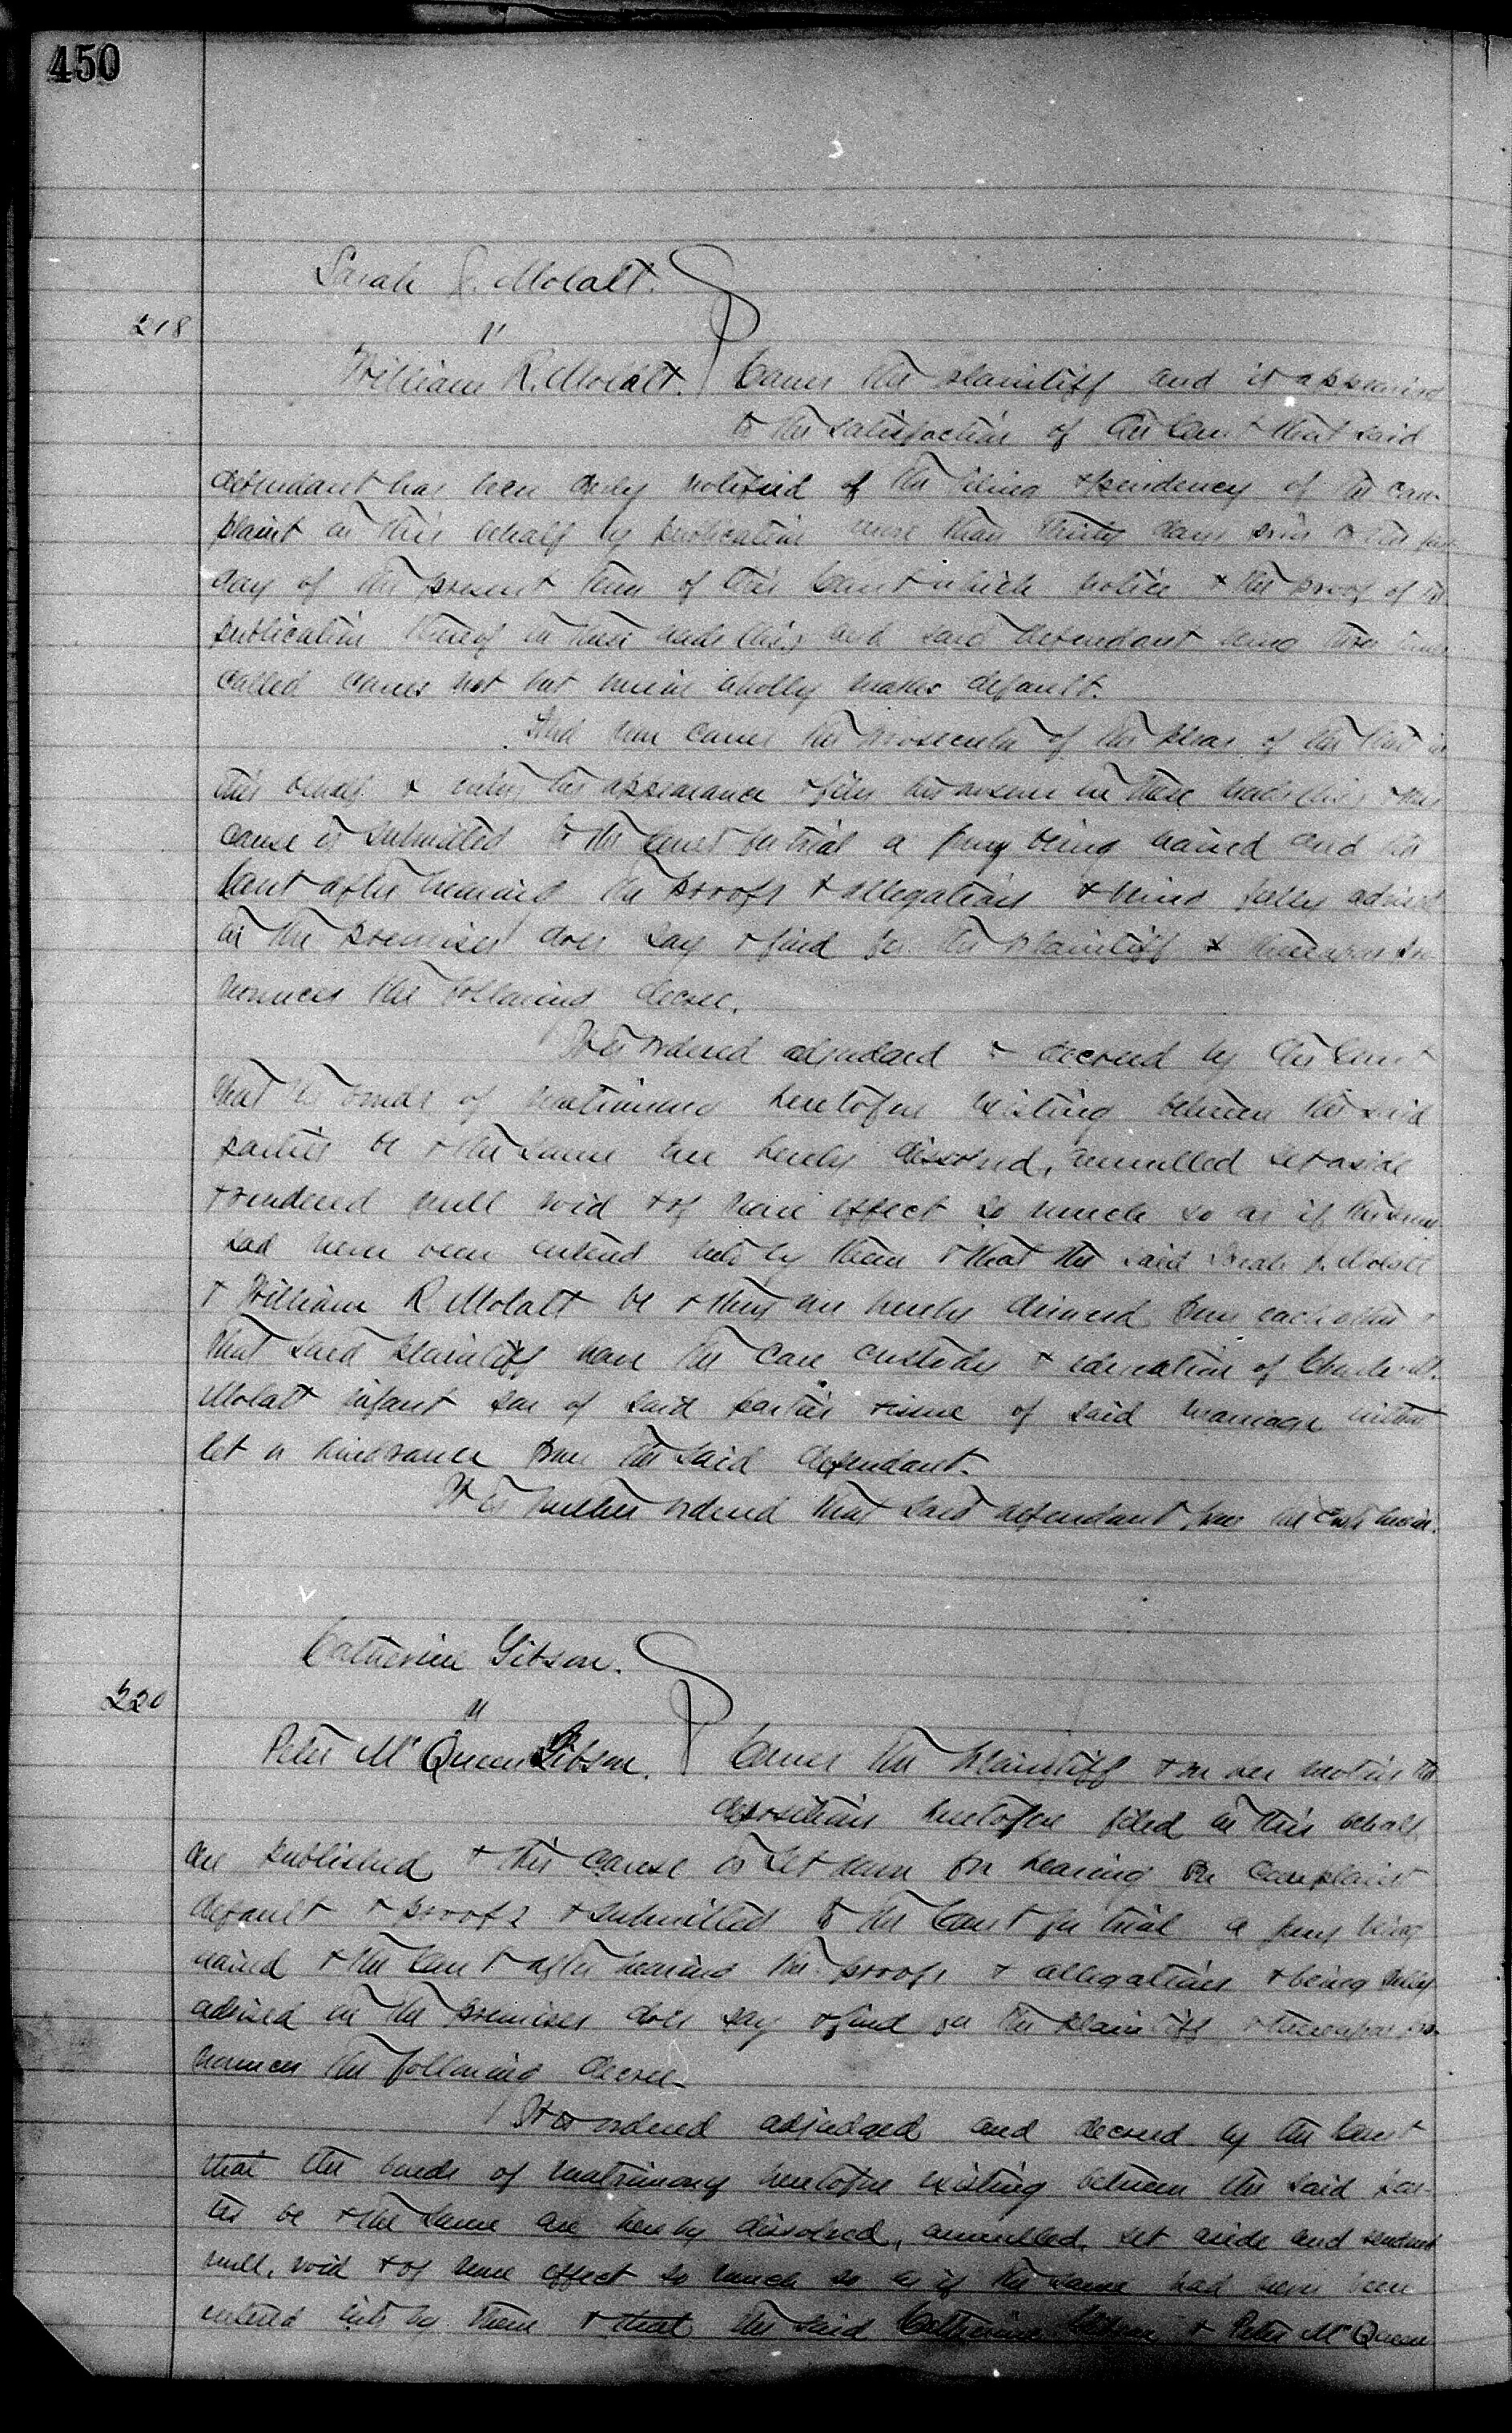 450
Sarah J. Molatt.
218
"
William R. Molatt. Comes the plaintiff and it appearing
to the satisfaction of the Court that said
defendant has been duly notified of the filing & pendency of the com-
plaint in this behalf by publication more than thirty days prior to the first
day of the present term of this Court which notice & the proof of the
publication thereof in these words (his) and said defendant being three times
called comes not but herein wholly makes default.
And now comes the prosecutor of the pleas of the State in
this behalf & enters his appearance & files his answer in these words (his) & this
cause is submitted to the Court for trial a jury being waived and the
Court after hearing the proofs & allegations & being fully advised
in the premises does say & find for the plaintiff & thereupon pro-
nounces the following decree.
It is ordered adjudged & decreed by the Court
that the bonds of matrimony heretofore existing between the said
parties be & the same are hereby dissolved, annulled set aside
& rendered null void & of none effect so much so as if the same
had never been entered into by them & that the said Sarah J. Molatt
& William R. Molatt be & they are hereby divorced from each other &
that said plaintiff have the care custody & education of
Molatt infant son of said parties issue of said marriage without
let or hindrance from the said defendant.
It is further ordered that said defendant pay the costs herein.
Catherine Gibson.
220
"
Peter Mc Queen Gibson. Comes the plaintiff & on her motion the
depositions heretofore filed in this behalf
are published & this cause is set down for hearing on complaint
default & proofs & submitted to the Court for trial a jury being
waived & the Court after hearing the proofs & allegations & being fully
advised in the premises does say & find for the plaintiff & thereupon pro-
nounces the following decree.
It is ordered adjudged and decreed by the Court
that the bonds of matrimony heretofore existing between the said par-
ties be & the same are hereby dissolved, annulled, set aside and rendered
null, void & of none effect so much so as if the same had never been
entered into by them & that the said Catherine Gibson & Peter Mc Queen